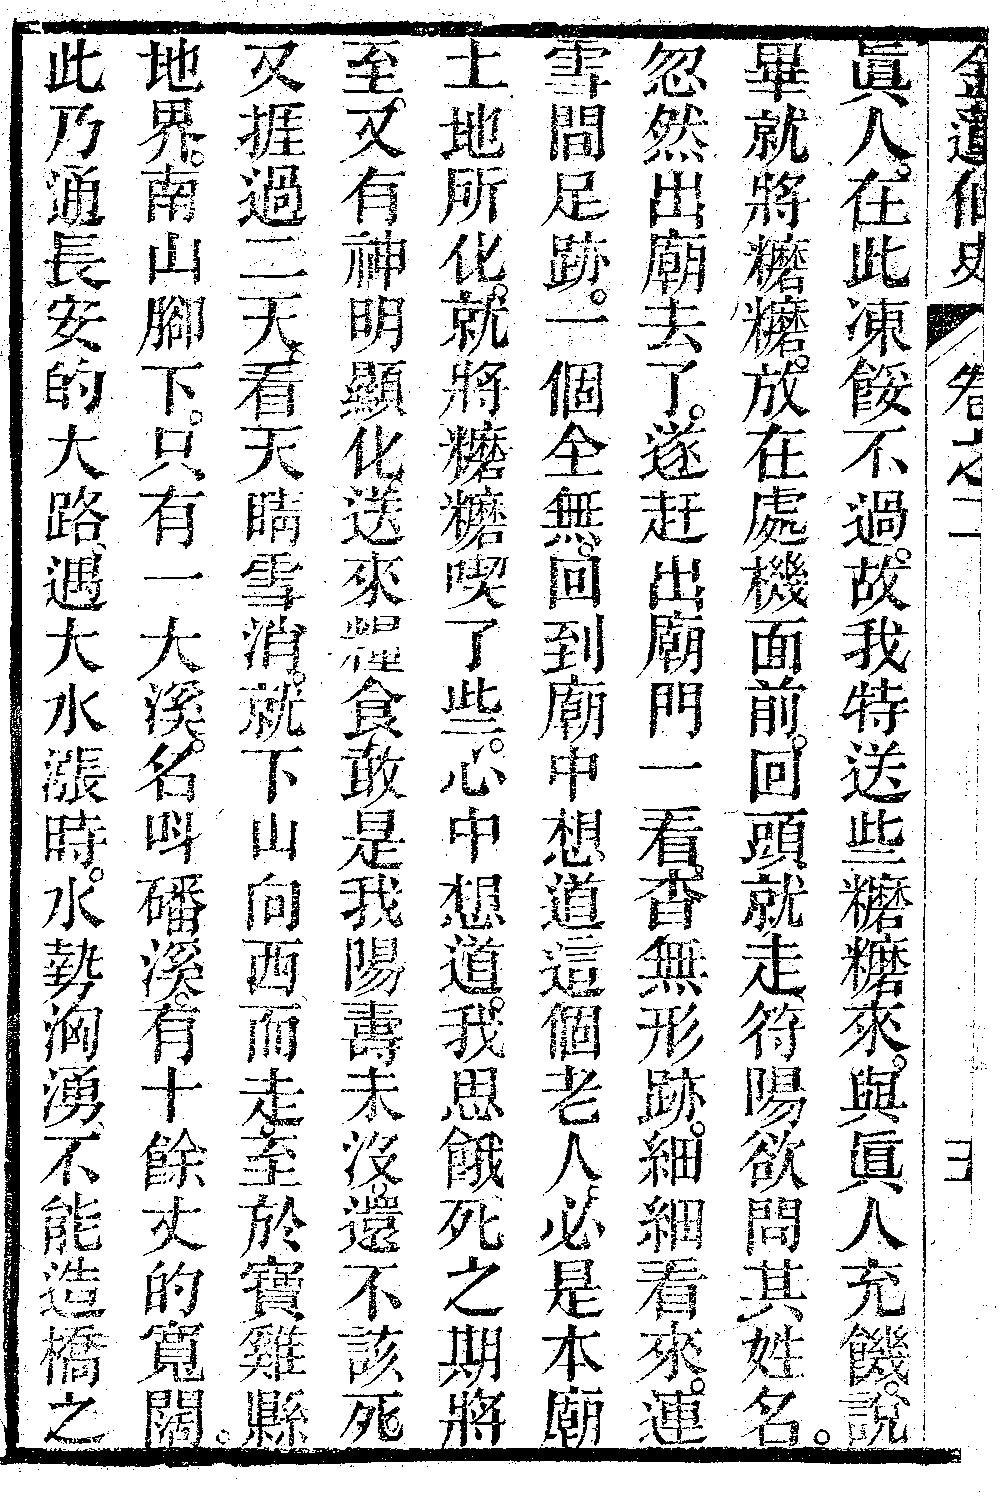 金蓮仙史 卷之二 王
眞人。在此凍餒不過。故我特送些糖糖來。與眞人充饑。說
畢就將糖糖。放在處機面前。回頭就走、符陽欲問其姓名。
忽然出廟去了。遂赶出廟門一看。杳無形跡。細細看來。連
雪間足跡。一個全無。回到廟中想道這個老人、必是本廟
土地所化。就將糖糖喫了些。心中想道。我思餓死之期將
至。又有神明顯化、送來糧食敢是我陽壽未沒。還不該死。
又捱過二天、看天晴雪消。就下山向西而走。至於寶雞縣
地界。南山腳下。只有一大溪。名呌磻溪。有十餘丈的寬闊。
此乃通長安的大路、遇大水漲時。水勢洶湧、不能造橋之